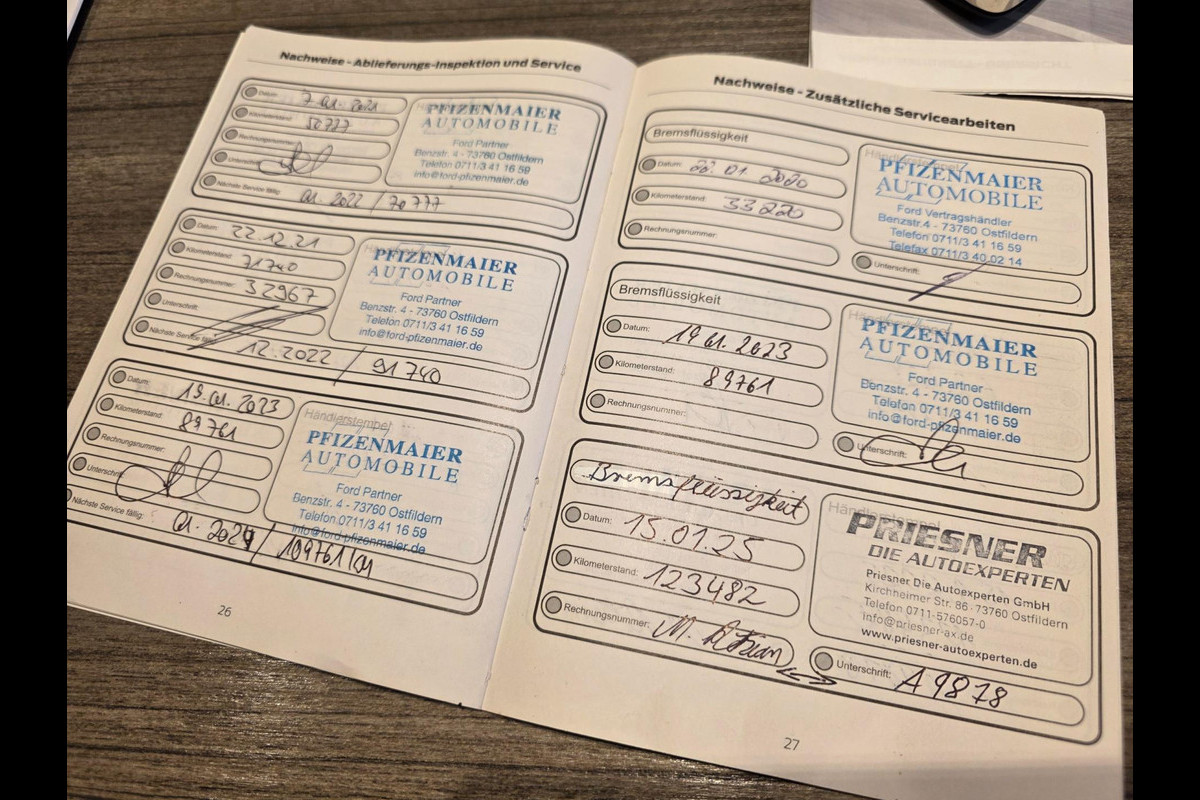 Nachweise - Ablieferungs-Inspektion und Service
Datum: 7.01.2021
Kilometerstand: 50777
Rechnungsnummer:
Unterschrift:
Nächste Service fällig: 01.2022 / 70777
PFIZENMAIER
AUTOMOBILE
Ford Partner
Benzstr. 4 - 73760 Ostfildern
Telefon 0711/3 41 16 59
info@ford-pfizenmaier.de
Datum: 22.12.21
Kilometerstand: 71740
Rechnungsnummer: 32967
Unterschrift:
Nächste Service fällig: 12.2022 / 91740
PFIZENMAIER
AUTOMOBILE
Ford Partner
Benzstr. 4 - 73760 Ostfildern
Telefon 0711/3 41 16 59
info@ford-pfizenmaier.de
Datum: 19.01.2023
Kilometerstand: 89761
Rechnungsnummer:
Unterschrift:
Nächste Service fällig: 01.2024 / 109761 km
Händlerstempel
PFIZENMAIER
AUTOMOBILE
Ford Partner
Benzstr. 4 - 73760 Ostfildern
Telefon 0711/3 41 16 59
info@ford-pfizenmaier.de
26
Nachweise - Zusätzliche Servicearbeiten
Bremsflüssigkeit
Datum: 22.01.2020
Kilometerstand: 33220
Rechnungsnummer:
Händlerstempel
PFIZENMAIER
AUTOMOBILE
Ford Vertragshändler
Benzstr.4 - 73760 Ostfildern
Telefon 0711/3 41 16 59
Telefax 0711/3 40 02 14
Unterschrift:
Bremsflüssigkeit
Datum: 19.01.2023
Kilometerstand: 89761
Rechnungsnummer:
Händlerstempel
PFIZENMAIER
AUTOMOBILE
Ford Partner
Benzstr. 4 - 73760 Ostfildern
Telefon 0711/3 41 16 59
info@ford-pfizenmaier.de
Unterschrift:
Bremsflüssigkeit
Datum: 15.01.25
Kilometerstand: 123482
Rechnungsnummer: M.
Händlerstempel
PRIESNER
DIE AUTOEXPERTEN
Priesner Die Autoexperten GmbH
Kirchheimer Str. 86 · 73760 Ostfildern
Telefon 0711-576057-0
info@priesner-ax.de
www.priesner-autoexperten.de
Unterschrift: A9878
27